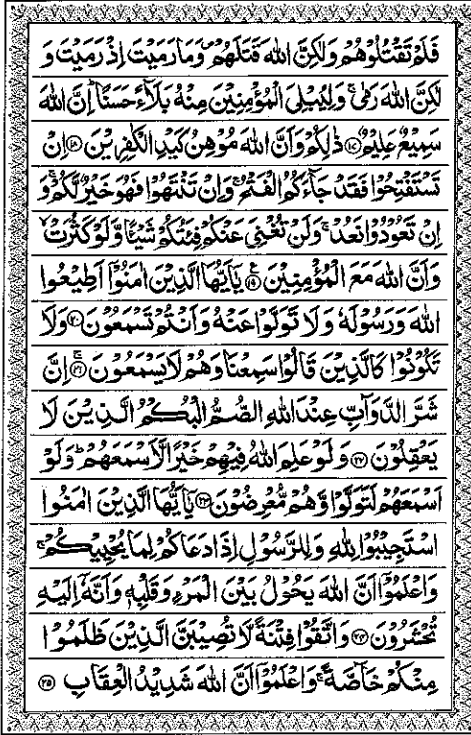 فَلَمْ تَقْتُلُوْهُمْ وَلٰكِنَّ اللّٰهَ قَتَلَهُمْ ۪ وَمَا رَمَيْتَ اِذْ رَمَيْتَ وَ
لٰكِنَّ اللّٰهَ رَمٰى ۚ وَلِيُبْلِيَ الْمُؤْمِنِيْنَ مِنْهُ بَلَآءً حَسَنًا ؕ اِنَّ اللّٰهَ
سَمِيْعٌ عَلِيْمٌ ﴿۱۷﴾ ذٰلِكُمْ وَاَنَّ اللّٰهَ مُوْهِنُ كَيْدِ الْكٰفِرِيْنَ ﴿۱۸﴾ اِنْ
تَسْتَفْتِحُوْا فَقَدْ جَآءَكُمُ الْفَتْحُ ۚ وَاِنْ تَنْتَهُوْا فَهُوَ خَيْرٌ لَّكُمْ ۚ وَ
اِنْ تَعُوْدُوْا نَعُدْ ۚ وَلَنْ تُغْنِيَ عَنْكُمْ فِئَتُكُمْ شَيْئًا وَّلَوْ كَثُرَتْ ۙ
وَاَنَّ اللّٰهَ مَعَ الْمُؤْمِنِيْنَ ﴿۱۹﴾ يٰۤاَيُّهَا الَّذِيْنَ اٰمَنُوْۤا اَطِيْعُوا
اللّٰهَ وَرَسُوْلَهٗ وَلَا تَوَلَّوْا عَنْهُ وَاَنْتُمْ تَسْمَعُوْنَ ﴿۲۰﴾ وَلَا
تَكُوْنُوْا كَالَّذِيْنَ قَالُوْا سَمِعْنَا وَهُمْ لَا يَسْمَعُوْنَ ﴿۲۱﴾ اِنَّ
شَرَّ الدَّوَآبِّ عِنْدَ اللّٰهِ الصُّمُّ الْبُكْمُ الَّذِيْنَ لَا
يَعْقِلُوْنَ ﴿۲۲﴾ وَلَوْ عَلِمَ اللّٰهُ فِيْهِمْ خَيْرًا لَّاَسْمَعَهُمْ ؕ وَلَوْ
اَسْمَعَهُمْ لَتَوَلَّوْا وَّهُمْ مُّعْرِضُوْنَ ﴿۲۳﴾ يٰۤاَيُّهَا الَّذِيْنَ اٰمَنُوا
اسْتَجِيْبُوْا لِلّٰهِ وَلِلرَّسُوْلِ اِذَا دَعَاكُمْ لِمَا يُحْيِيْكُمْ ۚ
وَاعْلَمُوْۤا اَنَّ اللّٰهَ يَحُوْلُ بَيْنَ الْمَرْءِ وَقَلْبِهٖ وَاَنَّهٗۤ اِلَيْهِ
تُحْشَرُوْنَ ﴿۲۴﴾ وَاتَّقُوْا فِتْنَةً لَّا تُصِيْبَنَّ الَّذِيْنَ ظَلَمُوْا
مِنْكُمْ خَآصَّةً ۚ وَاعْلَمُوْۤا اَنَّ اللّٰهَ شَدِيْدُ الْعِقَابِ ﴿۲۵﴾